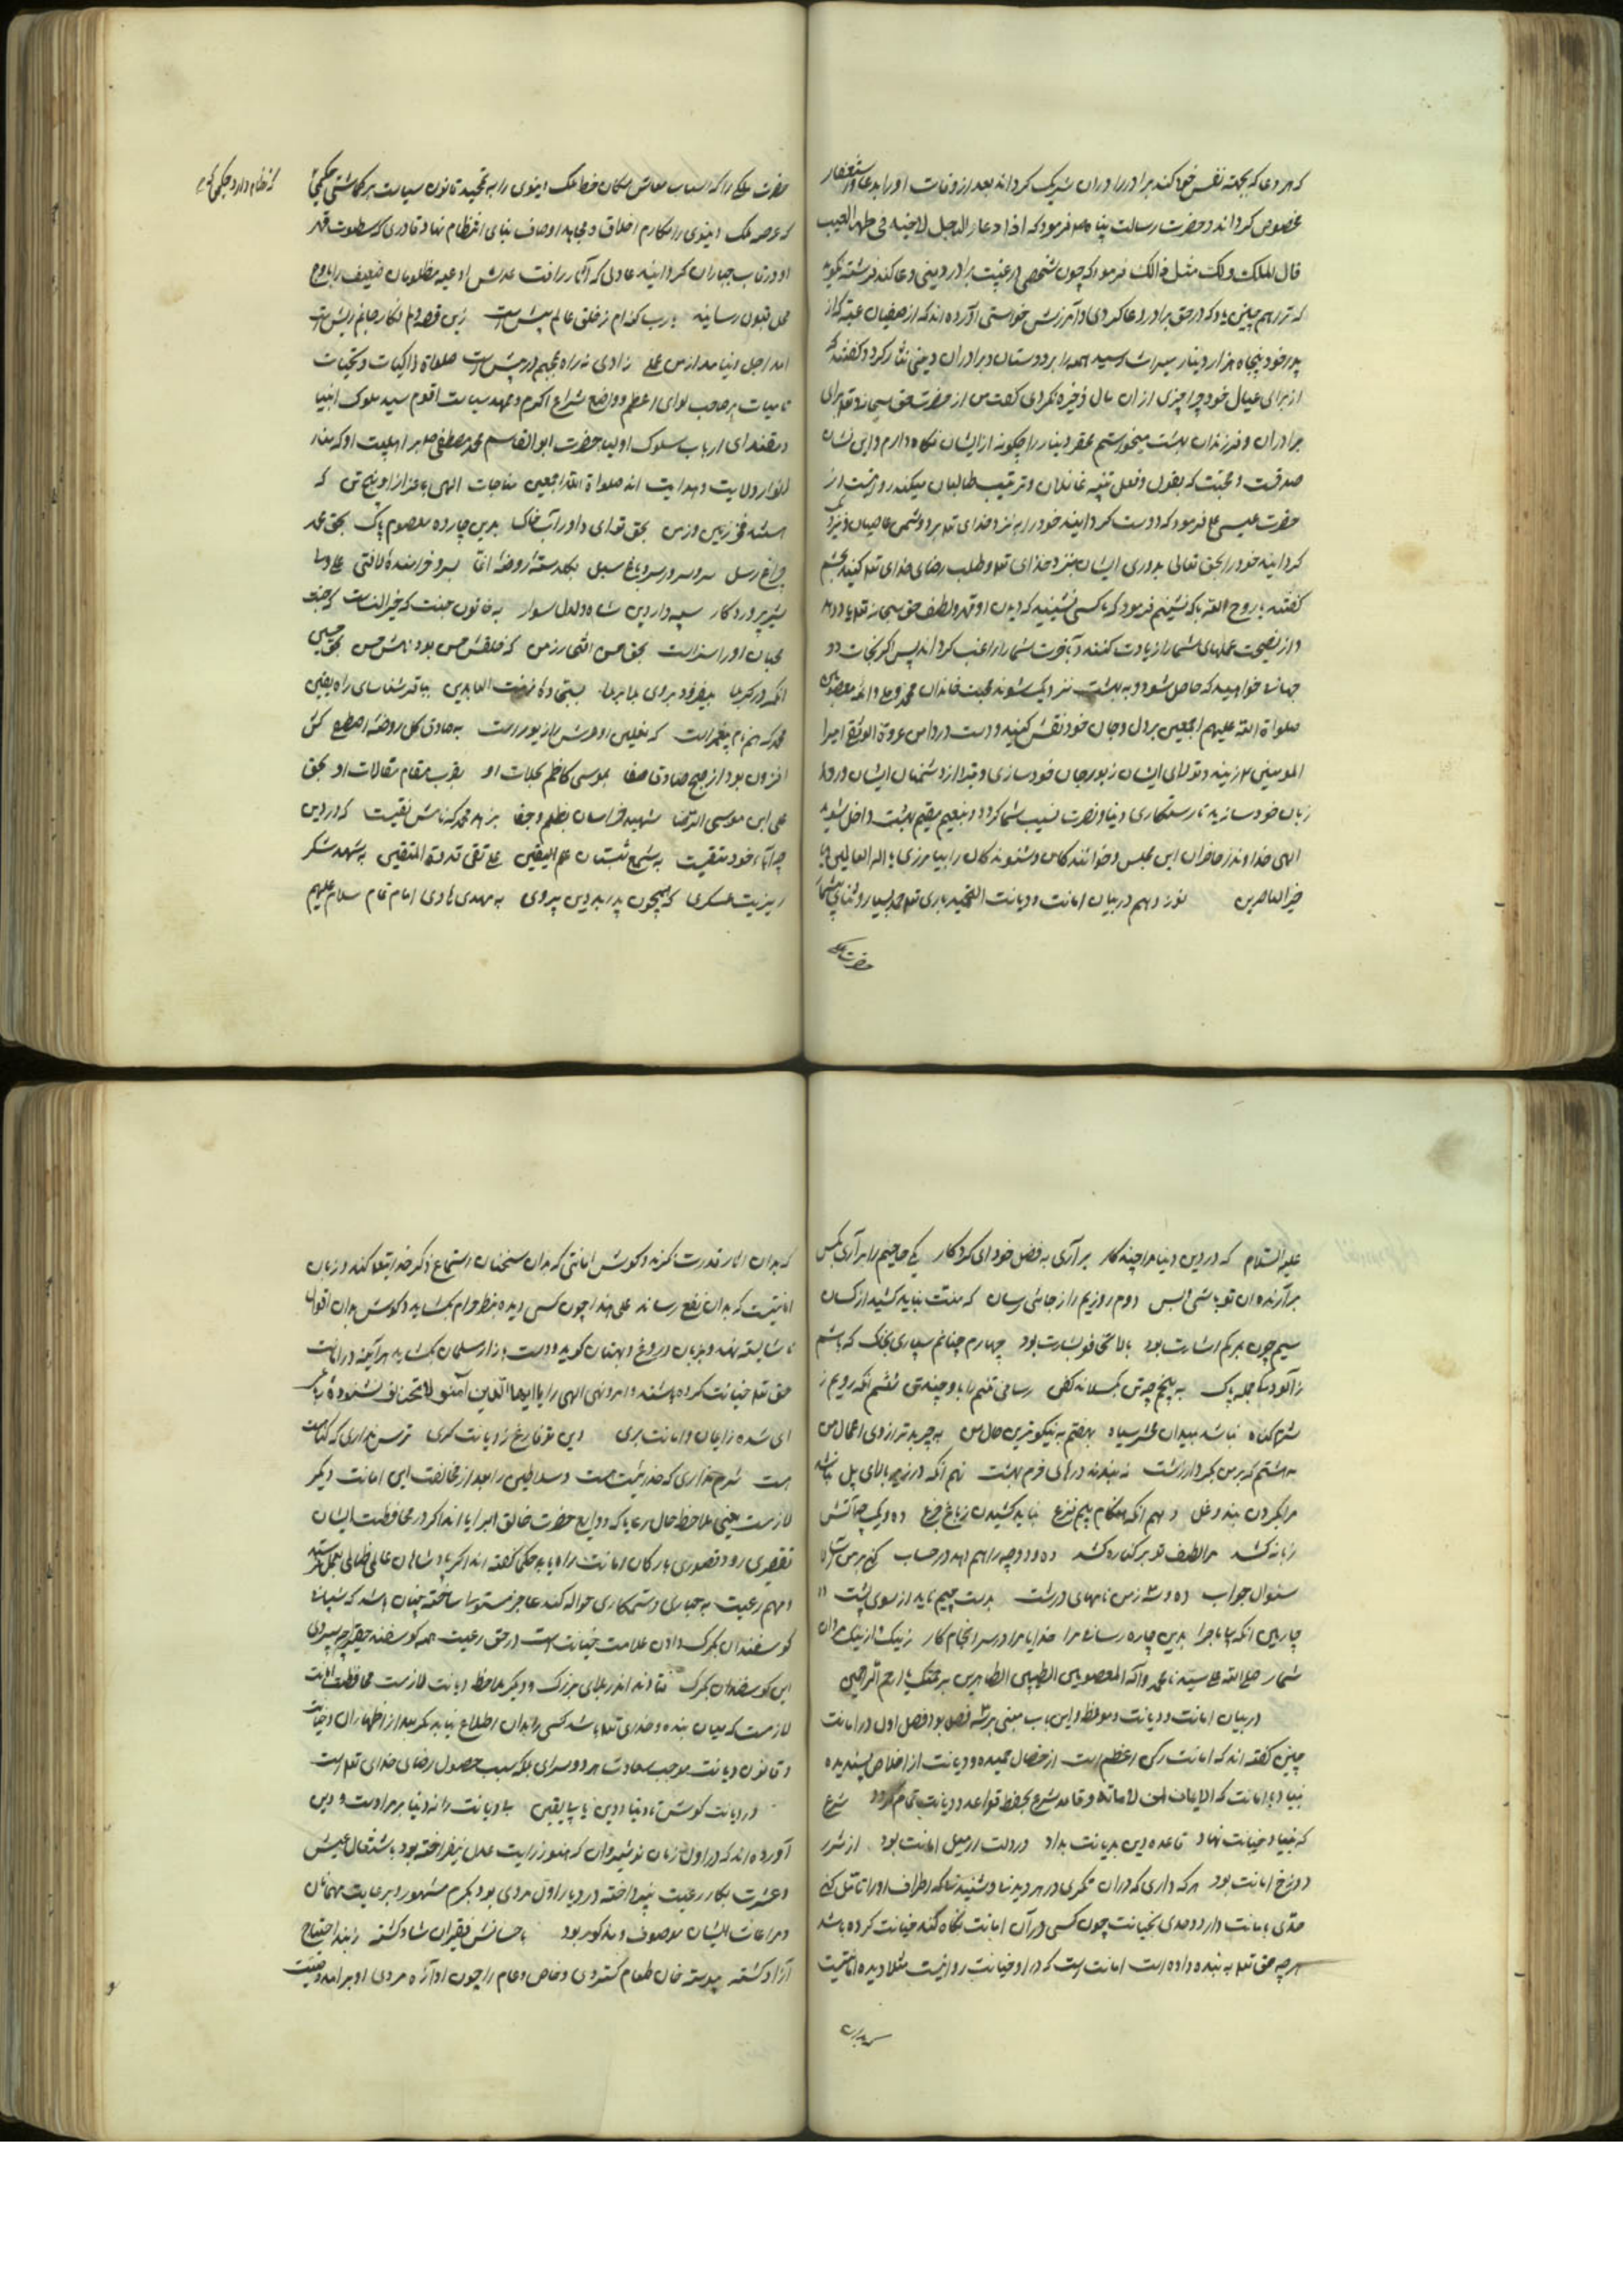 که هر دعا که بجهته نفس خود کند برادر را در ان شریک کرداند بعد از وفات او را بدعا و استغفار
مخصوص کرداند و حضرت رسالت پناه صلعم فرمود که اذا دعا الرجل لاخیه فی ظهر الغیب
قال الملک ولک مثل ذالک فرمود که چون شخصی در غیبت برادر دینی دعا کند فرشته کوید
که ترا هم چنین باد که در حق برادر دعا کردی و آمرزش خواستی آورده اند که از صفیان عتبه که از
پدر خود پنجاه هزار دینار میراث رسید همه را بر دوستان و برادران دینی نثار کرد و کفتند که
از برای عیال خود چرا چیزی از ان مال ذخیره نکردی کفت من از حضرت حق سبحانه و تعالی برای
برادران و فرزندان بهشت میخواستم محقر دینار را چکونه از ایشان نکاه دارم و این نشان
صداقت و محبت که بقول و فعل تنبیه غافلان و ترغیب طالبان میکند روایتست از
حضرت عیسی ع فرمود که دوست کردانید خود را به نزد خدای تعالی بر دوشمنی عاصیان و نزدیک
کردانید خود را بحق تعالی بدوری ایشان بنزد خدای تعالی و طلب رضای خدای تعالی کنید بخشم
کفتند یا روح الله با که نشینیم فرمود که با کسی نشینید که دیدن او قهر و لطف حق سبحانه تعالی یاد دهد
و از نصیحت عملهای شما را زیادت کند و بآخرت شما را راغب کرداند پس اکر نجات دو
جهان خواهید که حاصل شود و به بهشت نزدیک شوید محبت خاندان محمد و علی و ائمه معصومین
صلواة الله علیهم اجمعین بر دل و جان خود نقش کنید و دست در دامن عروة الوثقی امیر
المومنین زنید و تولای ایشان زیور جان خود سازی و تبرا از دشمنان ایشان ورد
زبان خود سازید تا رستکاری دنیا و نصرت نصیب شما کردد و بنعیم مقیم بهشت داخل شوید
الهی خداوندا حاضران این مجلس و خوانندکان و شنوندکان را بیامرزی یا اله العالمین و یا
خیر الناصرین نوزدهم در بیان امانت و دیانت التحمید باری تعالی حمد بسیار و ثنای بیشمار
حضرت ملکی
حضرت ملکی را که اسباب معاش سکان خطه ملک دنیوی را به تمهید قانون سیاست بر کماشتی حکیمی
که نظام دارد حکیمی که
که عرصه ملک دنیوی را بمکارم اخلاق و محامد اوصاف بنای انتظام نهاد قادری که سطوت قهر
او رقاب جباران کردانید عادلی که آثار رافت عدلش ادعیه مظلومان ضعیف را باوج
محل قبول رسانید یارب کنه ام ز خلق عالم بیش است زین قصه دلم فکار جانم ریش است
آمد اجل و نیامد از من عملی زادی نه و راه عجبم در پیش است صلواة زاکیات و تحیات
نامیات بر صاحب لوای اعظم و واضع شراع اکرم و ممهد سیاست اقوم سید ملوک انبیا
و مقتدای ارباب سلوک اولیا حضرت ابو القاسم محمد مصطفی صلعم بر اهلبیت او که منار
انوار ولایت و هدایت اند صلواة الله اجمعین مناجات الهی باعزاز او پنج تن که
هستند فخر زمین و زمن بحق تو ای داور آب خاک بدین چارده معصوم پاک بحق محمد
چراغ رسل سر و سرور سرو باغ سبل بکلدسته روضه انما بسرو خرامنده لافتی علی
شیر پرورد کار سپهدار دین شاه دلدل سوار به خاتون جنت که خیر النساست که جنت
محبان او را سزاست بحق حسن آنشه رزمن که خلقش حسن بود نامش حسن بحق حسین
آنکه در کربلا بیفزود بروی بلا بر بلا بسجاده زینت العابدین بباقر شناسای راه یقین
محمد که همنام پیغمبر است که نعلین او عرش را زیور است به صادق کل روضه اصطفا کش
افزون بود از صبح صادق صفا بموسی کاظم بحالات او بقرب مقام مقالات او بحق
علی ابن موسی الرضا شهید خراسان بظلم و جفا بزهد محمد که نامش نقیست که در دین
چو آباء خود متقیست به شمع شبستان علم الیقین علی تقی قدوة المتقین به شهد شکر
ریزیت عسکری که همچون پدر بد دین پروری به مهدی هادی امام تمام سلام علیهم
علیه السلام که در دین دنیا مرا چند کار برآری به فضل خود ای کردکار یکی حاجتم را بر آری بکس
برآرنده آن تو باشی و بس دوم روزیم را ز جائی رسان که منت نباید کشید از کسان
سیم چون بمرکم اشارت بود بلا تخافو بشارت بود چهارم چنانم سپاری بخاک که باشم
ز آلودکی جمله پاک به پنجم چو تن بکسلاند کفن رسانی تنم را باو چند تن ششم آنکه رویم ز
شرم کناه نباشد بمیدان محشر سیاه بهفتم به نیکو ترین حال من بچربد ترازوی اعمال من
به هشتم که برس بکردار زشت نه بندند درهای خرم بهشت نهم آنکه در زیر بالای پل نباشد
مرا بکردن بند و غل دهم آنکه هنکام بیم نزع نباید کشیدن ز باغ جزع ده و یک چو آتش
زبانه کشد مرا لطف تو بر کناره کشد ده و دو چو راهم دهد در حساب کنی بر من آسان
سئوال جواب ده و سه ز من نامهای درشت بدست چپم ناید از سوی پشت ده
چار این آنکه بیماجرا بدین چارده رسانی مرا خدایا مرا در سر انجام کار ز نیک و از نیک مردان
شمار صلی الله علی سیدنا محمد و آله المعصومین الطیبین الطاهرین برحمتک یا ارحم الراحمین
در بیان امانت و دیانت و موعظه و این باب مبنی بر سه فصل بود فصل اول در امانت
چنین کفته اند که امانت رکن اعظم است از خصال حمیده و دیانت از اخلاص پسندیده
بنیاد با امانت که الایمان لمن لا امانة و قاعد شرع بحفظ قواعد و دیانت تمام کردد شرع
که بنیاد خیانت نهاد قاعده دین بدیانت بداد در دلت ار میل امانت بود از شرر
دوزخ امانت بود هرکه داری که در ان نکری در هر دید نا و شنید نا که اطراف او را تامل کنی
حدی بامانت دارد و حدی بخیانت چون کسی در آن امانت نکاه نکند خیانت کرده باشد
هر چه حق تعالی به بنده داده است امانت است که در او خیانت روا نیست مثلا دیده امانتیست
که بدان
که بدان آثار قدرت نکرند و کوش امانتی که بدان سخنان استماع ذکر خدایتعالی کنند و زبان
امانتیست که بدان نفع رساند علی هذا چون کسی دیده بنظر حرام بکشاید و کوش بدان اقوال
ناشایسته نهد و بزبان دروغ و بهتان کوید و دست بازار مسلمان بکشاید هر آینه در امانت
حق تعالی خیانت کرده باشند و امر و نهی الهی را یا ایها الذین آمنو لا تخونو نشنوده باشد
ای شده زایمان و امانت بری دین تو فارغ ز دیانت کری ترس نداری که کناهت
هست شرم نداری که خدائیت هست و سلاطین را بعد از مخالفت این امانت دیکر
لازمست یعنی ملاحظه حال رعایا که ودایع حضرت خالق البرایا اند اکر در محافظت ایشان
تقصیری رود قصوری بارکان امانت راه یابد حکما کفته اند اکر پادشاهان عامل ظالمی بعمل فرستد
و مهم رعیت به جباری و ستمکاری حواله کند عاجز مستوسا ساخته چنان باشد که شبانا
کوسفندان بکرک دادن علامت خیانت است در حق رعیت همه کوسفند حقیر چه سپردی
این کوسفندان بکرک فتادند اندر بلای بزرک و دیکر ملاحظه دیانت لازمست محافظت امانت
لازمست که میان بنده و خدای تعالی باشد کسی را بدان اطلاع نباید مکر بعد از اظهار ان و خیانت
و قانون دیانت موجب سعادت هر دو سرای بلکه سبب حصول رضای خدای تعالی است
در دیانت کوش تا دنیا و دین یابی یقین با دیانت را نه دنیا بر مراد است و دین
آورده اند که در اول زمان نوشیروان که هنوز رایت عدل نیفراخته بود باشتغال عیش
و عشرت بکار رعیت نپرداخته در دیار او مردی بود بکرم مشهور و برعایت مهمانان
و مراعات ایشان موصوف و مذکور بود باحسانش فقیران شاد کشته ز بند احتیاج
آزاد کشته پیوسته خان طعام کستردی و خاص و عام را چون آوازه مردی او برآمد و ضیافت